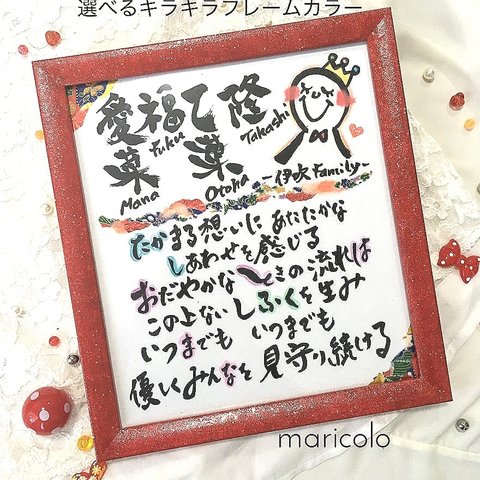 選べるキラキラフレームカラー
愛菜 福 乙葉 隆
Mana Fuku Otoha Takashi
~伊吹 Family~
たかまる想いに あたたかな
しあわせを感じる
おだやかな 一ときの流れは
この上ない しふくを生み
いつまでも いつまでも
優しくみんなを 見守り続ける
maricolo